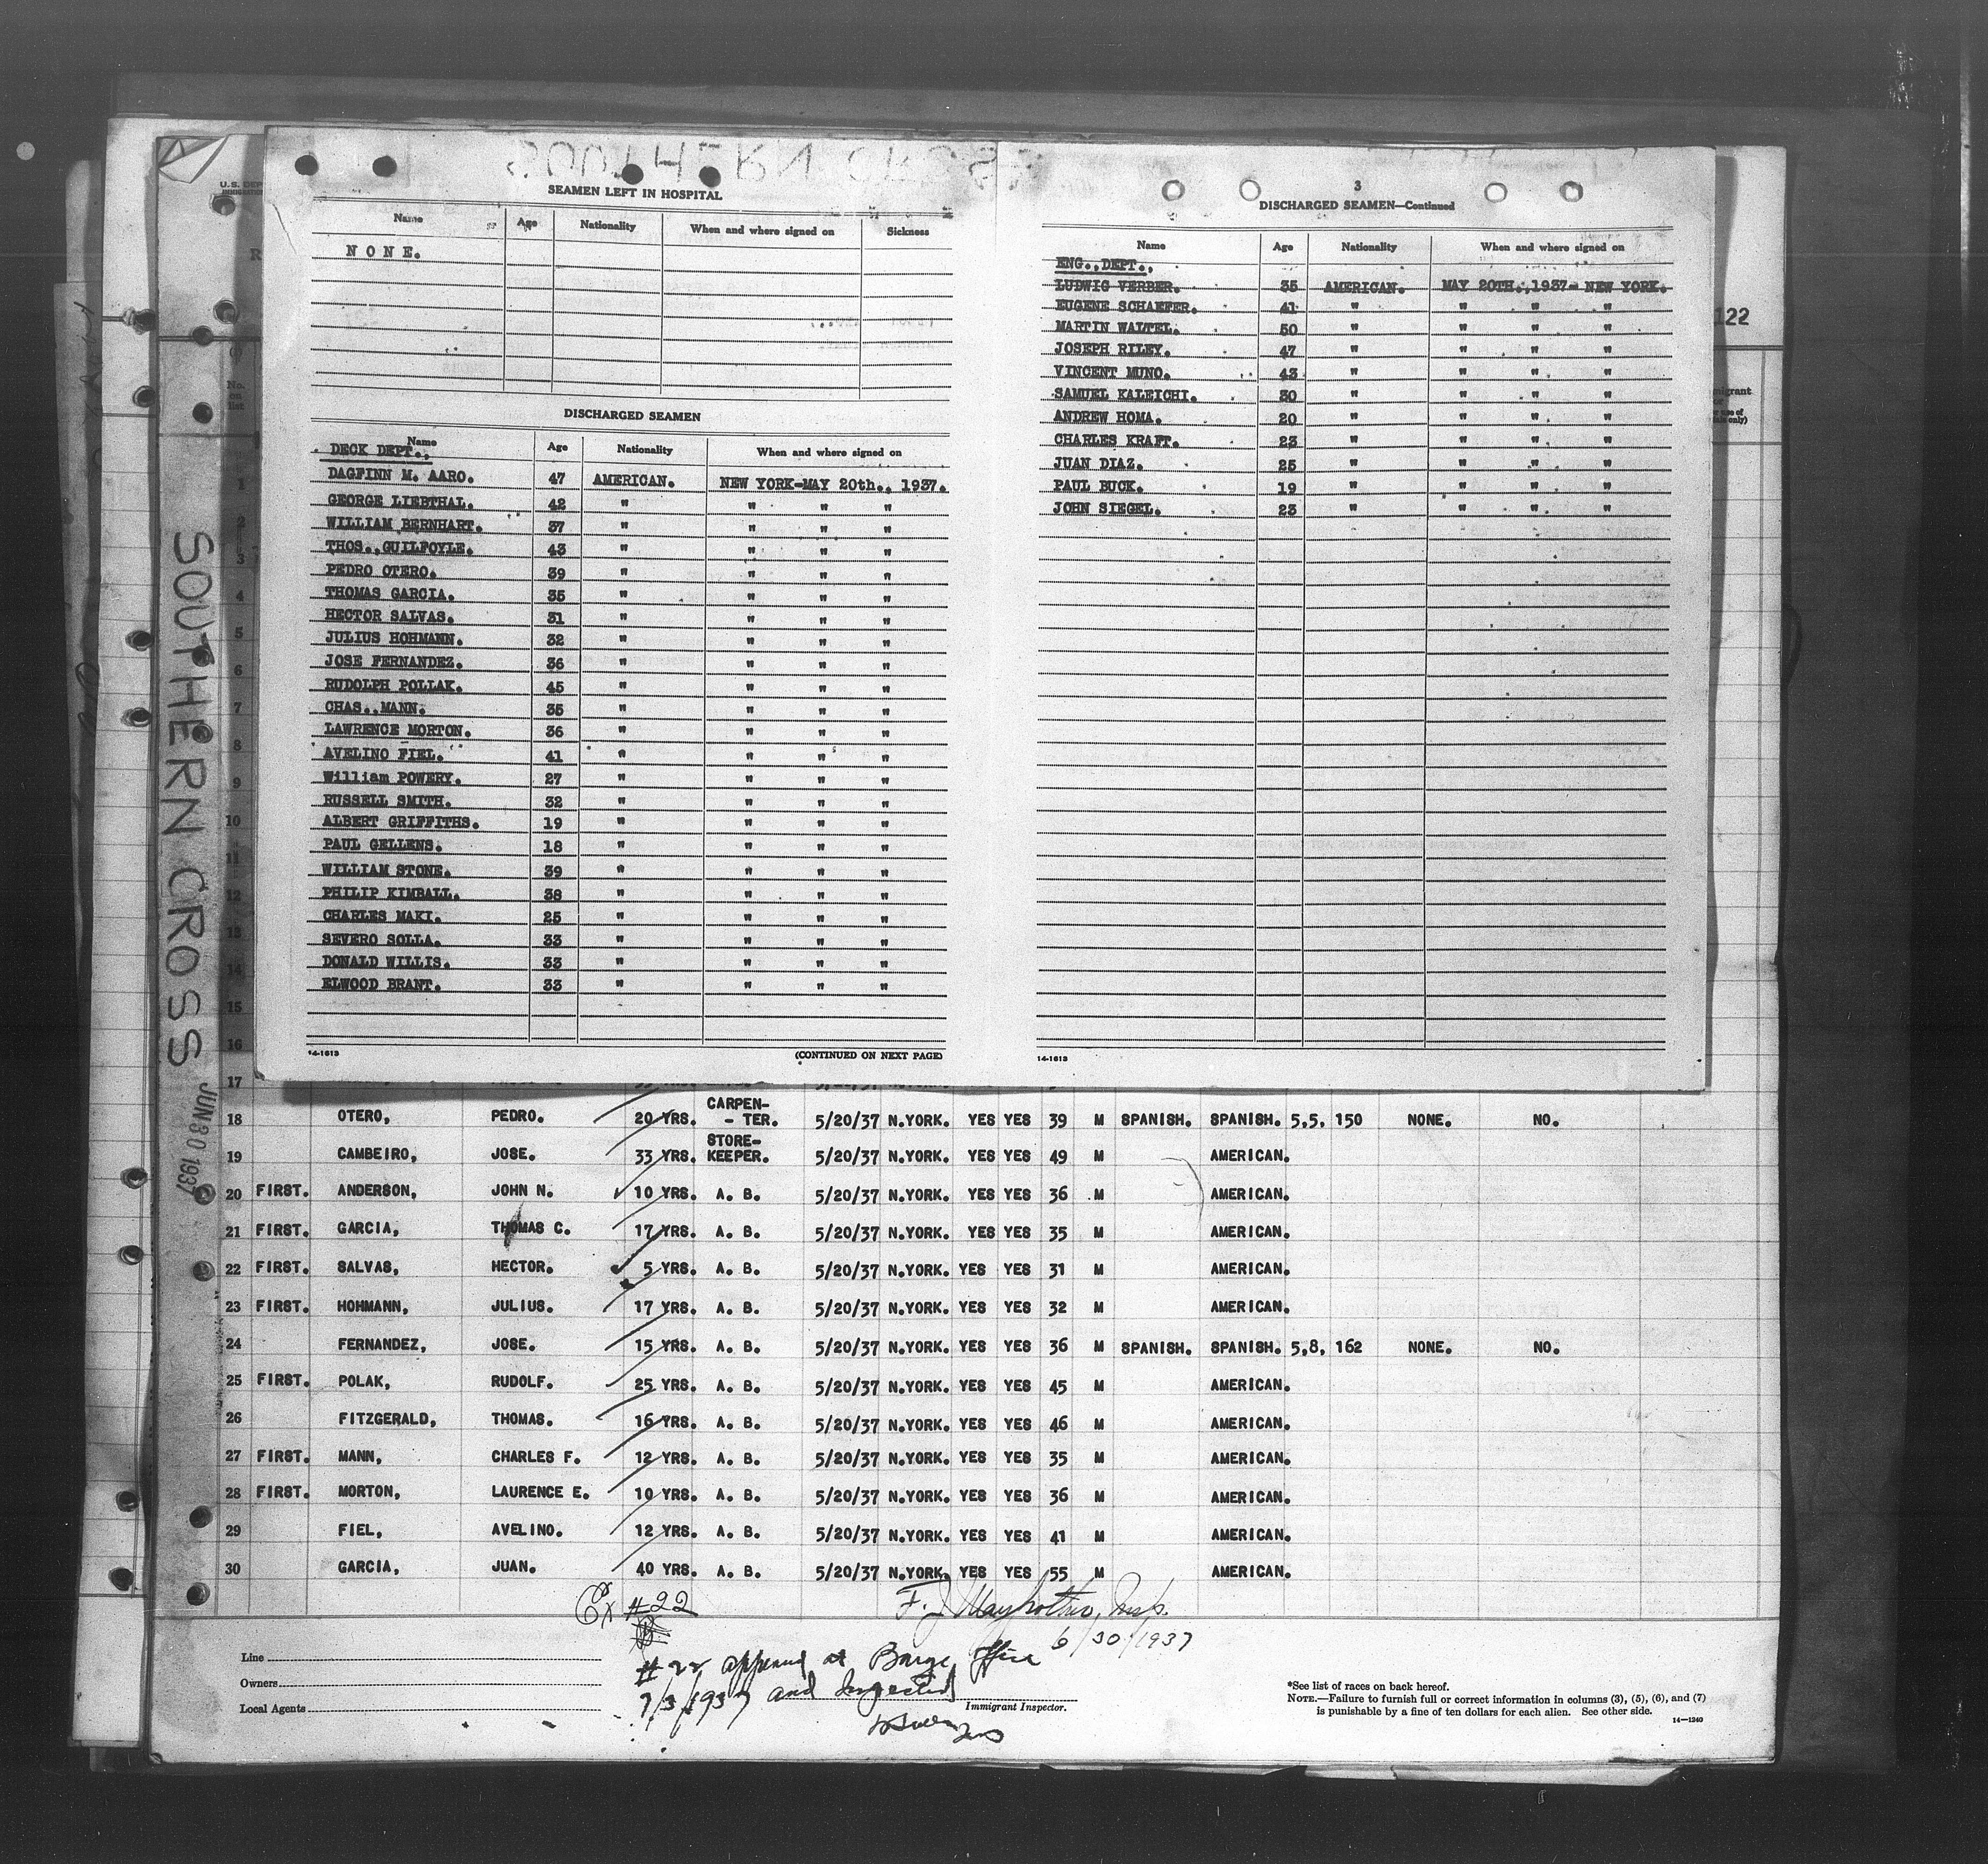 SOUTHERN CROSS
SEAMEN LEFT IN HOSPITAL
Name Age Nationality When and where signed on Sickness
NONE.
DISCHARGED SEAMEN
Name Age Nationality When and where signed on
DECK DEPT.,
DAGFINN M. AARO. 47 AMERICAN. NEW YORK-MAY 20th., 1937.
GEORGE LIEBTHAL. 42 " " " "
WILLIAM BERNHART. 37 " " " "
THOS., GUILFOYLE. 43 " " " "
PEDRO OTERO. 39 " " " "
THOMAS GARCIA. 35 " " " "
HECTOR SALVAS. 31 " " " "
JULIUS HOHMANN. 32 " " " "
JOSE FERNANDEZ. 36 " " " "
RUDOLPH POLLAK. 45 " " " "
CHAS., MANN. 35 " " " "
LAWRENCE MORTON. 36 " " " "
AVELINO FIEL. 41 " " " "
William POWERY. 27 " " " "
RUSSELL SMITH. 32 " " " "
ALBERT GRIFFITHS. 19 " " " "
PAUL GELLENS. 18 " " " "
WILLIAM STONE. 39 " " " "
PHILIP KIMBALL. 38 " " " "
CHARLES MAKI. 25 " " " "
SEVERO SOLLA. 33 " " " "
DONALD WILLIS. 33 " " " "
ELWOOD BRANT. 33 " " " "
14-1613 (CONTINUED ON NEXT PAGE)
3
DISCHARGED SEAMEN—Continued
Name Age Nationality When and where signed on
ENG., DEPT.,
LUDWIG VERBER. 35 AMERICAN. MAY 20TH., 1937- NEW YORK.
EUGENE SCHAEFER. 41 " " " "
MARTIN WALTEL. 50 " " " "
JOSEPH RILEY. 47 " " " "
VINCENT MUNO. 43 " " " "
SAMUEL KALEICHI. 30 " " " "
ANDREW HOMA. 20 " " " "
CHARLES KRAFT. 23 " " " "
JUAN DIAZ. 25 " " " "
PAUL BUCK. 19 " " " "
JOHN SIEGEL. 23 " " " "
14-1613
U.S. DEP
122
No. on list
1
2
3
4
5
6
7
8
9
10
11
12
13
14
15
16
17
SOUTHERN CROSS
JUN 30 1937
18 OTERO, PEDRO. 20 YRS. CARPEN- - TER. 5/20/37 N.YORK. YES YES 39 M SPANISH. SPANISH. 5,5, 150 NONE. NO.
19 CAMBEIRO, JOSE. 33 YRS. STORE- KEEPER. 5/20/37 N.YORK. YES YES 49 M AMERICAN.
20 FIRST. ANDERSON, JOHN N. 10 YRS. A. B. 5/20/37 N.YORK. YES YES 36 M AMERICAN.
21 FIRST. GARCIA, THOMAS C. 17 YRS. A. B. 5/20/37 N.YORK. YES YES 35 M AMERICAN.
22 FIRST. SALVAS, HECTOR. 5 YRS. A. B. 5/20/37 N.YORK. YES YES 31 M AMERICAN.
23 FIRST. HOHMANN, JULIUS. 17 YRS. A. B. 5/20/37 N.YORK. YES YES 32 M AMERICAN.
24 FERNANDEZ, JOSE. 15 YRS. A. B. 5/20/37 N.YORK. YES YES 36 M SPANISH. SPANISH. 5,8, 162 NONE. NO.
25 FIRST. POLAK, RUDOLF. 25 YRS. A. B. 5/20/37 N.YORK. YES YES 45 M AMERICAN.
26 FITZGERALD, THOMAS. 16 YRS. A. B. 5/20/37 N.YORK. YES YES 46 M AMERICAN.
27 FIRST. MANN, CHARLES F. 12 YRS. A. B. 5/20/37 N.YORK. YES YES 35 M AMERICAN.
28 FIRST. MORTON, LAURENCE E. 10 YRS. A. B. 5/20/37 N.YORK. YES YES 36 M AMERICAN.
29 FIEL, AVELINO. 12 YRS. A. B. 5/20/37 N.YORK. YES YES 41 M AMERICAN.
30 GARCIA, JUAN. 40 YRS. A. B. 5/20/37 N.YORK. YES YES 55 M AMERICAN.
Ex #22
F. J. Insp.
6/30/1937
#22 appeared at Barge Office
7/3/1937 and Inspected
Line
Owners
Local Agents
Immigrant Inspector.
*See list of races on back hereof.
NOTE.—Failure to furnish full or correct information in columns (3), (5), (6), and (7)
is punishable by a fine of ten dollars for each alien. See other side.
14—1240